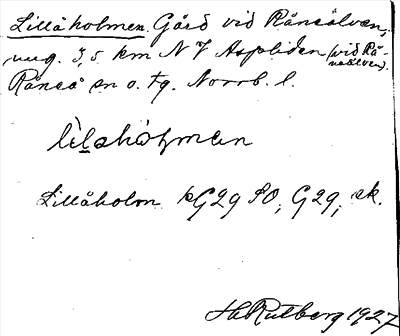 Lillåholmen. Gård vid Råneälven,
ung. 3,5 km NV Aspliden (vid Rå-
neälven).
Råneå sn o. tg. Norrb. l.
Lillåholm G29 SO, G29, sk.
H. Rutberg 1927